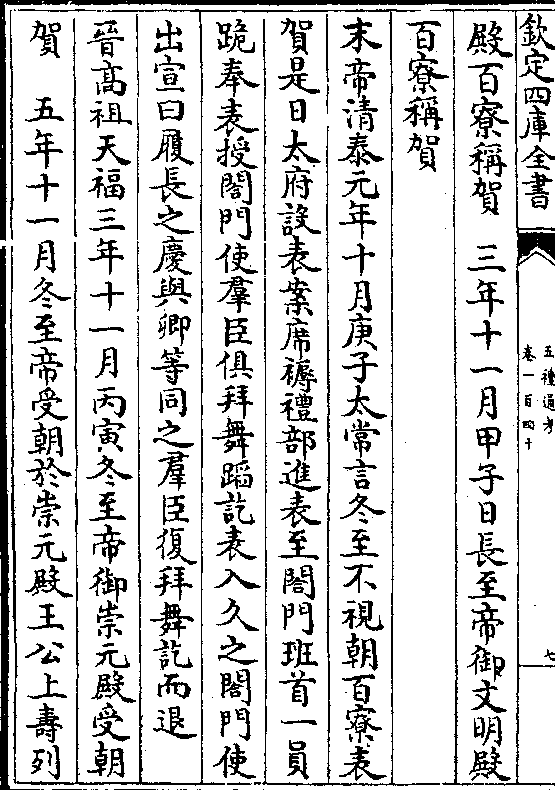 欽定四庫全書
五禮通考
卷一百四十
七
殿百寮稱賀　三年十一月甲子日長至帝御文明殿
百寮稱賀
末帝清泰元年十月庚子太常言冬至不視朝百寮表
賀是日太府設表案席褥禮部進表至閤門班首一員
跪奉表授閤門使羣臣俱拜舞蹈訖表入久之閤門使
出宣曰履長之慶與卿等同之羣臣復拜舞訖而退
晉高祖天福三年十一月丙寅冬至帝御崇元殿受朝
賀　五年十一月冬至帝受朝於崇元殿王公上壽列